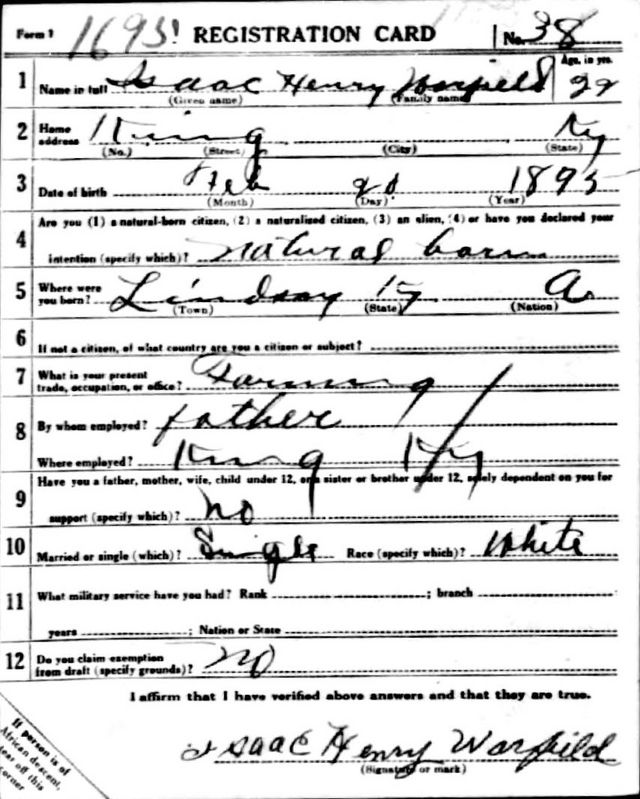 Form 1 1695! REGISTRATION CARD No. 38
1 Name in full Isaac Henry Warfield Age, in yrs. 22
(Given name) (Family name)
2 Home address King Ky
(No.) (Street) (City) (State)
3 Date of birth Feb 1895
(Month) (Day) (Year)
Are you (1) a natural-born citizen, (2) a naturalized citizen, (3) an alien, (4) or have you declared your
4 intention (specify which)? natural born
5 Where were you born? Lindsay Ky A
(Town) (State) (Nation)
6 If not a citizen, of what country are you a citizen or subject?
7 What is your present trade, occupation, or office? Farming
8 By whom employed? father
Where employed? King Ky
9 Have you a father, mother, wife, child under 12, or a sister or brother under 12, solely dependent on you for
support (specify which)? no
10 Married or single (which)? Single Race (specify which)? White
11 What military service have you had? Rank ; branch
years ; Nation or State
12 Do you claim exemption from draft (specify grounds)? NO
I affirm that I have verified above answers and that they are true.
Isaac Henry Warfield
(Signature or mark)
If person is of
African descent,
tear off this
corner